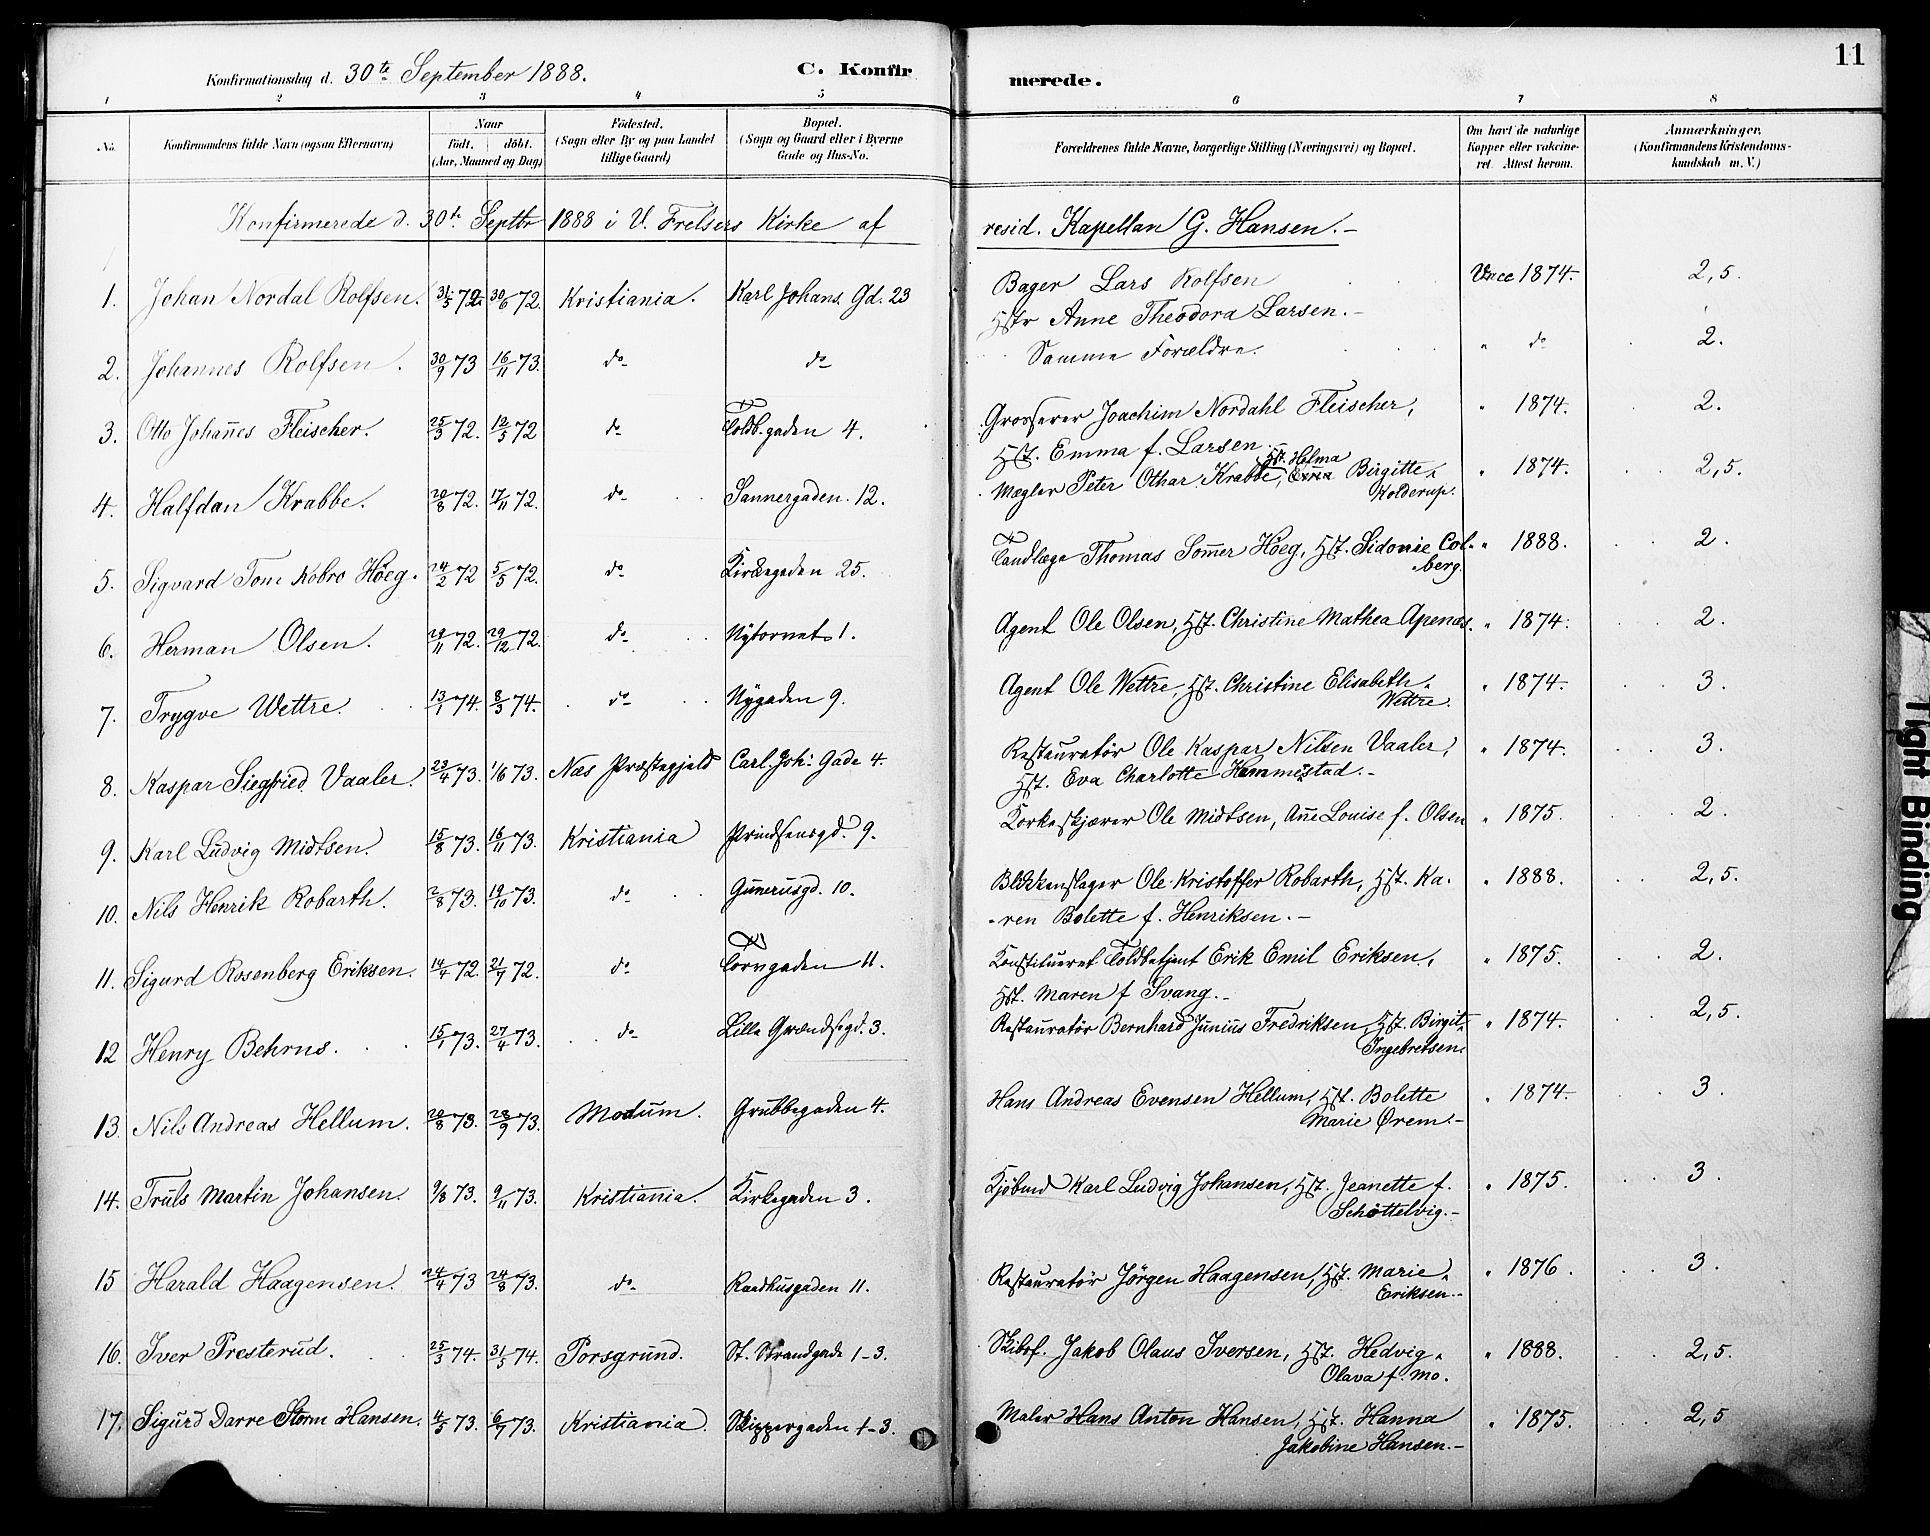 11
Konfirmationsdag d. 30te September 1888. C. Konfirmerede.
1 2 3 4 5 6 7 8
No. Konfirmandens fulde Navn (ogsaa Efternavn) Naar født. døbt. (Aar, Maaned og Dag) Fødested. (Sogn eller By og paa Landet tillige Gaard) Bopæl. (Sogn og Gaard eller i Byerne Gade og Hus-No. Forældrenes fulde Navne, borgerlige Stilling (Næringsvei) og Bopæl. Om havt de naturlige Kopper eller vakcineret. Attest herom. Anmærkninger, (Konfirmandens Kristendomskundskab m. V.)
Konfirmerede d. 30te Septbr 1888 i V. Frelsers Kirke af resid. Kapellan G. Hansen.-
1. Johan Nordal Rolfsen. 31/5 72. 30/6 72. Kristiania. Karl Johans Gd. 23 Bager Lars Rolfsen Vacc 1874. 2,5.
Hstr Anne Theodora Larsen.-
2. Johannes Rolfsen. 30/9 73 16/11 73. do do Samme Forældre. " do 2.
3. Otto Johannes Fleischer. 25/3 72. 12/5 72 do Toldb.gaden 4. Grosserer Joachim Nordahl Fleischer, " 1874. 2.
Hst. Emma f. Larsen.
4. Halfdan Krabbe. 20/8 72. 17/11 72. do Sannergaden. 12. Mægler Peter Othar Krabbe, Hst. Helma Birgitte Kolderup. " 1874. 2,5.
5. Sigvard Tom Kobro Høeg. 24/2 72 5/5 72. do Kirkegaden 25. Tandlæge Thomas Sømer Høeg, Hst. Sidonie Colberg. " 1888. 2.
6. Herman Olsen. 29/11 72. 29/12 72. do Nytorvet 1. Agent Ole Olsen, Hst. Christine Mathea Apenæs. " 1874. 2.
7. Trygve Wettre. 13/1 74. 8/3 74. do Nygaden 9. Agent Ole Wettre, Hst. Christine Elisabeth Wettre. " 1874. 3.
8. Kaspar Siegfried Vaaler. 23/4 73. 1/6 73. Næs Præstegjeld Carl. Joh: Gade 4 Restauratør Ole Kaspar Nilsen Vaaler, " 1874. 3.
Hst. Eva Charlotte Hammestad.-
9. Karl Ludvig Midtsen. 15/8 73. 16/11 73. Kristiania Prindsensgd. 9. Korkeskjærer Ole Midtsen, Ane Louise f. Olsen " 1875. 2.
10. Nils Henrik Robarth. 2/8 73. 19/10 73. do Gunerusgd. 10. Blikkenslager Ole Kristoffer Robarth, Hst. Ka- " 1888. 2,5.
-ren Bolette f. Henriksen.-
11. Sigurd Rosenberg Eriksen. 14/4 72. 21/7 72. do Torvgaden 11. Konstitueret Toldbetjent Erik Emil Eriksen, " 1875. 2.
Hst. Maren f Svang.-
12 Henry Behrns. 15/1 73. 27/4 73. do Lille Grændsegd. 3. Restauratør Bernhard Junius Fredriksen, Hst. Birgit Ingebretsen. " 1874. 2,5.
13. Nils Andreas Hellum. 20/8 73. 28/9 73. Modum. Grubbegaden 4. Hans Andreas Evensen Hellum, Hst. Bolette " 1874. 3.
Marie Ørem.-
14. Truls Martin Johansen. 9/8 73. 9/11 73. Kristiania. Kirkegaden 3. Kjøbmd Karl Ludvig Johansen, Hst. Jeanette f. " 1875. 3.
Schøttelvig.-
15 Harald Haagensen. 24/4 73 24/8 73. do Raadhusgaden 11. Restauratør Jørgen Haagensen, Hst. Marie " 1876. 3.
Eriksen.-
16. Iver Presterud. 25/3 74. 31/5 74. Porsgrund. St. Strandgade 1-3. Skibsf. Jakob Olaus Iversen, Hst. Hedvig " 1888. 2,5.
Olava f. Mo.
17. Sigurd Darre Storm Hansen. 4/5 73. 6/7 73. Kristiania. Skippergaden 1-3. Maler Hans Anton Hansen, Hst. Hanna " 1875. 2,5
Jakobine Hansen.-
Tight Binding